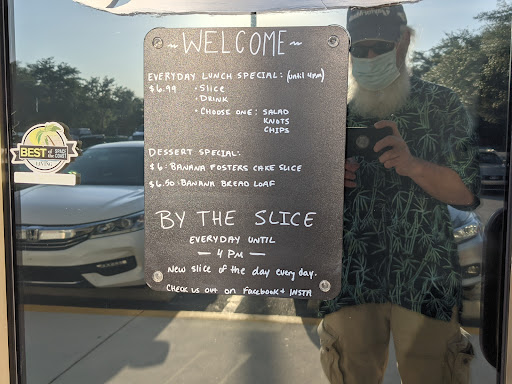 ~WELCOME~
EVERYDAY LUNCH SPECIAL: (until 4pm)
$6.99 • SLICE
• DRINK
• CHOOSE ONE: SALAD
KNOTS
CHIPS
DESSERT SPECIAL:
$6: BANANA FOSTERS CAKE SLICE
$6.50: BANANA BREAD LOAF
BY THE SLICE
EVERYDAY UNTIL
— 4 PM —
NEW SLICE OF THE DAY EVERY DAY.
CHECK US OUT ON FACEBOOK + INSTA
BEST of the SPACE COAST
LIVING